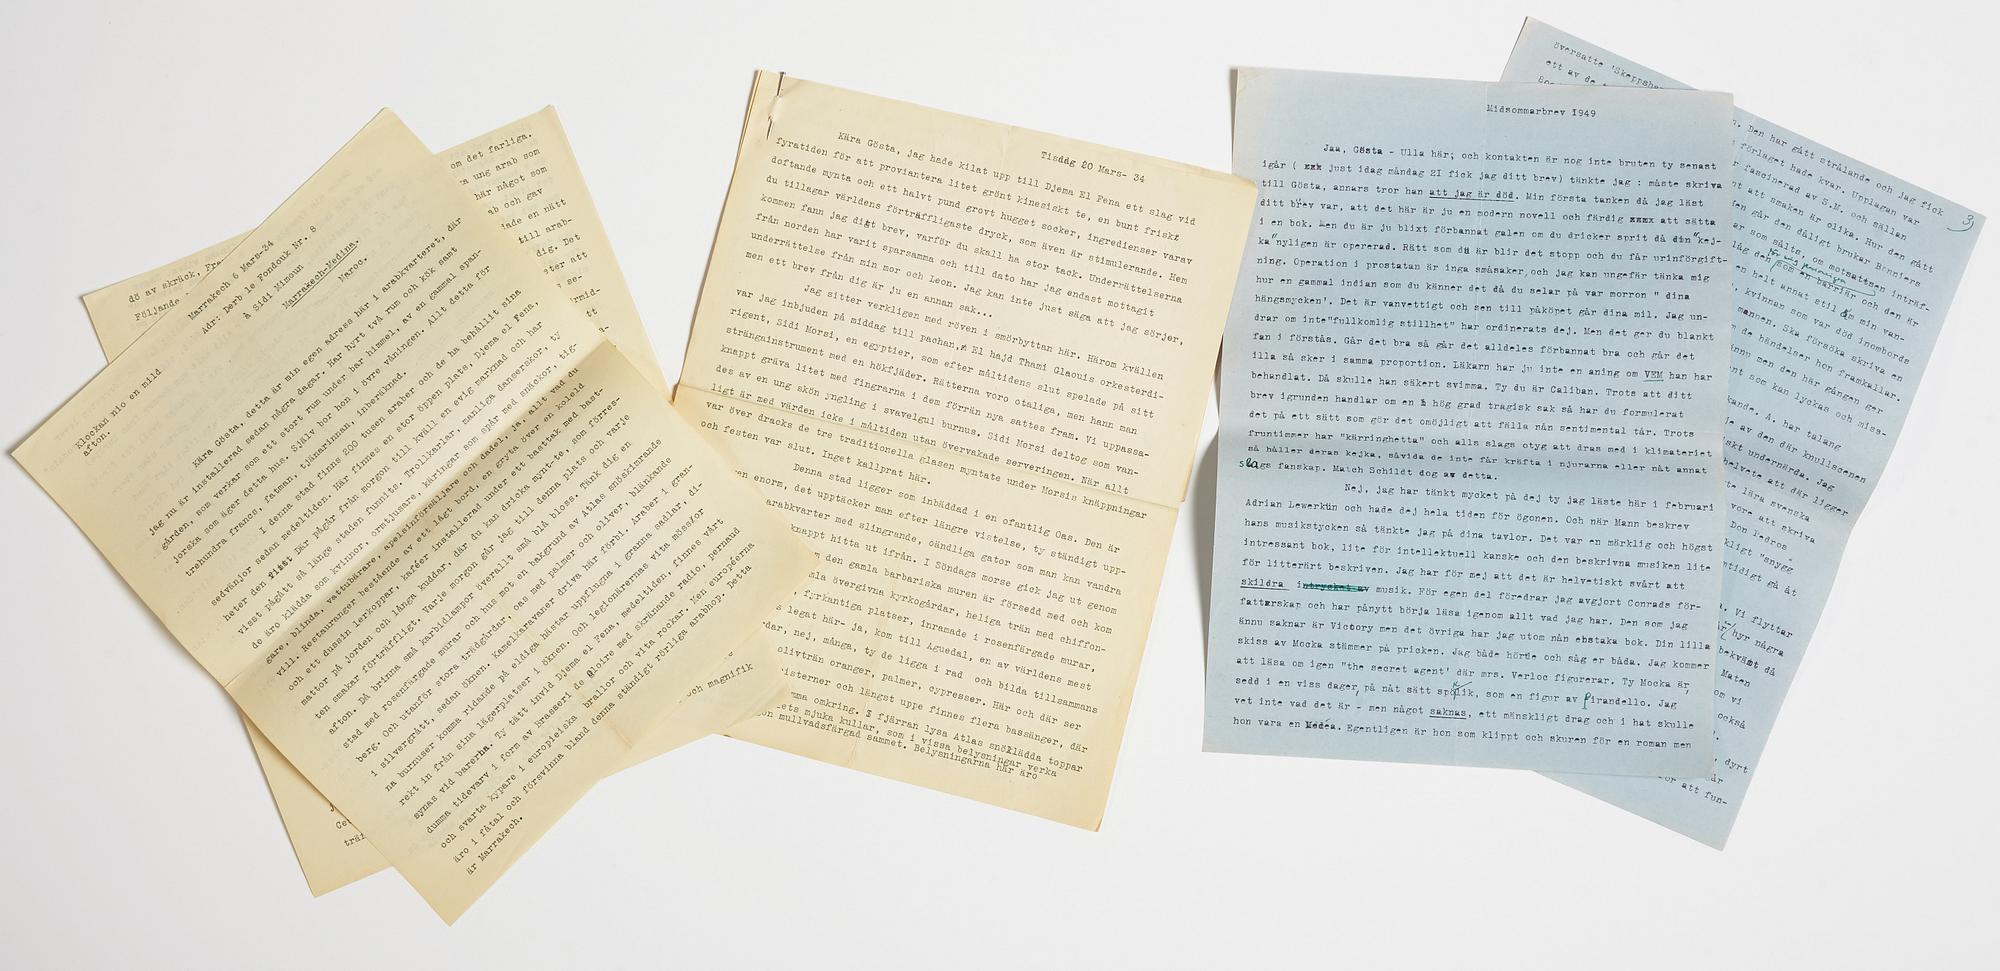 dö av skräck,
Följande
om det farliga.
ung arab som
här något som
ab och gav
ade en nätt
till arab-
dig. Det
ster att
Marrakech 6 Mars-34
Adr: Derb le Fondouk Nr. 8
À Sidi Mimoun
Marrakech-Medina.
Maroc.
Klockan nio en mild
afton.
Kära Gösta, detta är min egen adress här i arabkvarteret, där
jag nu är installerad sedan några dagar. Har hyrt två rum och kök samt
gården, som verkar som ett stort rum under bar himmel, av en gammal span-
jorska som äger detta hus. Själv bor hon i övre våningen. Allt detta för
trehundra francs, fatman, tjänarinnan, inberäknad.
I denna stad finns 200 tusen araber och de ha behållit sina
sedvänjor sedan medeltiden. Här finnes en stor öppen plats, Djema el Fena,
heter den. Där pågår från morgon till kväll en evig marknad och har
visst pågått så länge staden funnits. Trollkarlar, manliga dansörskor, ty
de äro klädda som kvinnor, ormtjusare, käringar som spår med snäckor, tig-
gare, blinda, vattubärare, apelsinförsäljare och dadel, ja, allt vad du
vill. Restauranger bestående av ett lågt bord, en gryta över en koleld
och ett dussin lerkoppar, kaféer installerad under ett basttak med bast-
mattor på jorden och långa kuddar, där du kan dricka mynt-te, som förres-
ten smakar förträffligt. Varje morgon går jag till denna plats och varje
afton. Då brinna små karbidlampor överallt små blå bloss. Tänk dig en
stad med rosenfärgade murar och hus mot en bakgrund av Atlas snöskimrande
berg. Och utanför stora trädgårdar, oas med palmer och oliver, blänkande
i silvergrått, sedan öknen. Kamelkaravaner driva här förbi. Araber i gran-
na burnuser komma ridande på eldiga hästar upplungna i granna sadlar, di-
rekt in från sina lägerplatser i öknen. Och legionärernas vita möss/or
synas vid barerna. Ty tätt invid Djema el Fena, medeltiden, finnes vårt
dumma tidevarv i form av Brasseri de Gloire med skränande radio, pernaud
och svarta kypare i europeiska brallor och vita rockar. Men européerna
äro i fåtal och försvinna bland denna ständigt rörliga arabhop. Detta
är Marrakech.
och magnifik
Tisdag 20 Mars- 34
Kära Gösta, jag hade kilat upp till Djema El Fena ett slag vid
fyratiden för att proviantera litet grönt kinesiskt te, en bunt friskt
doftande mynta och ett halvt pund grovt hugget socker, ingredienser varav
du tillagar världens förträffligaste dryck, som även är stimulerande. Hem
kommen fann jag ditt brev, varför du skall ha stor tack. Underrättelserna
från norden har varit sparsamma och till dato har jag endast mottagit
underrättelse från min mor och Leon. Jag kan inte just säga att jag sörjer,
men ett brev från dig är ju en annan sak...
Jag sitter verkligen med röven i smörbyttan här. Härom kvällen
var jag inbjuden på middag till pachan, El hajd Thami Glaouis orkesterdi-
rigent, Sidi Morsi, en egyptier, som efter måltidens slut spelade på sitt
stränginstrument med en hökfjäder. Rätterna voro otaliga, men hann man
knappt gräva litet med fingrarna i dem förrän nya sattes fram. Vi uppassa-
des av en ung skön yngling i svavelgul burnus. Sidi Morsi deltog som van-
ligt är med värden icke i måltiden utan övervakade serveringen. När allt
var över dracks de tre traditionella glasen myntate under Morsis knäppningar
och festen var slut. Inget kallprat här.
Denna stad ligger som inbäddad i en ofantlig Oas. Den är
en enorm, det upptäcker man efter längre vistelse, ty ständigt upp-
arabkvarter med slingrande, oändliga gator som man kan vandra
knappt hitta ut ifrån. I Söndags morse gick jag ut genom
den gamla barbariska muren är försedd med och kom
mla övergivna kyrkogårdar, heliga trän med chiffon-
fyrkantiga platser, inramade i rosenfärgade murar,
legat här- ja, kom till Aguedal, en av världens mest
dar, nej, många, ty de ligga i rad och bilda tillsammans
olivträn oranger, palmer, cypresser. Här och där ser
isterner och längst uppe finnes flera bassänger, där
omkring. I fjärran lysa Atlas snöklädda toppar
ets mjuka kullar, som i vissa belysningar verka
mullvadsfärgad sammet. Belysningarna här äro
Midsommarbrev 1949
Jaa, Gösta - Ulla här; och kontakten är nog inte bruten ty senast
igår ( xxx just idag måndag 2I fick jag ditt brev) tänkte jag : måste skriva
till Gösta, annars tror han att jag är död. Min första tanken då jag läst
ditt brev var, att det här är ju en modern novell och färdig xxxx att sätta
i en bok. Men du är ju blixt förbannat galen om du dricker sprit då din"kej-
ka"nyligen är opererad. Rätt som du är blir det stopp och du får urinförgift-
ning. Operation i prostatan är inga småsaker,och jag kan ungefär tänka mig
hur en gammal indian som du känner det då du selar på var morron " dina
hängsmycken'. Det är vanvettigt och sen till påköpet går dina mil. Jag un-
drar om inte"fullkomlig stillhet" har ordinerats dej. Men det ger du blankt
fan i förstås. Går det bra så går det alldeles förbannat bra och går det
illa så sker i samma proportion. Läkarn har ju inte en aning om VEM han har
behandlat. Då skulle han säkert svimma. Ty du är Caliban. Trots att ditt
brev igrunden handlar om en hög grad tragisk sak så har du formulerat
det på ett sätt som gör det omöjligt att fälla nån sentimental tår. Trots
fruntimmer har "kärringhetta" och alls slags otyg att dras med i klimateriet
så håller deras kejka, såvida de inte får kräfta i njurarna eller nåt annat
slags fanskap. Match Schildt dog av detta.
Nej, jag har tänkt mycket på dej ty jag läste här i februari
Adrian Lewerkün och hade dej hela tiden för ögonen. Och när Mann beskrev
hans musikstycken så tänkte jag på dina tavlor. Det var en märklig och högst
intressant bok, lite för intellektuell kanske och den beskrivna musiken lite
för litterärt beskriven. Jag har för mej att det är helvetiskt svårt att
skildra musik. För egen del föredrar jag avgjort Conrads för-
fattarskap och har pånytt börja läsa igenom allt vad jag har. Den som jag
ännu saknar är Victory men det övriga har jag utom nån enstaka bok. Din lilla
skiss av Mocka stämmer på pricken. Jag både hörde och såg er båda. Jag kommer
att läsa om igen "the secret agent' där mrs. Verloc figurerar. Ty Mocka är,
sedd i en viss dager, på nåt sätt spöklik, som en figur av Pirandello. Jag
vet inte vad det är - men något saknas, ett mänskligt drag och i hat skulle
hon vara en Medéa. Egentligen är hon som klippt och skuren för en roman men
översatte 'Skeppshe
ett av de
3
Den har gått strålande och jag fick
förlaget hade kvar. Upplagan var
fascinerad av S.M. och sällan
att smaken är olika. Hur den gått
gån går den dåligt brukar Bonniers
ar som sålts, om motsatsen inträf-
låg den som en barriär och den är
en helt annat stil än min van-
kvinnan som var död inombords
mannen. Ska försöka skriva en
de händelser hon framkallar.
ännu men den här gången ger
nt som kan lyckas och miss-
kande. A. har talang
je av den där knullscenen
skt undernärda. Jag
helvete att där ligger
re lära svenska
vore att skriva
Don Kedros
kligt "snygg
ntidigt gå åt
Vi flyttar
hyr några
bekvämt då
Maten
om vi
också
dyrt
att fun-